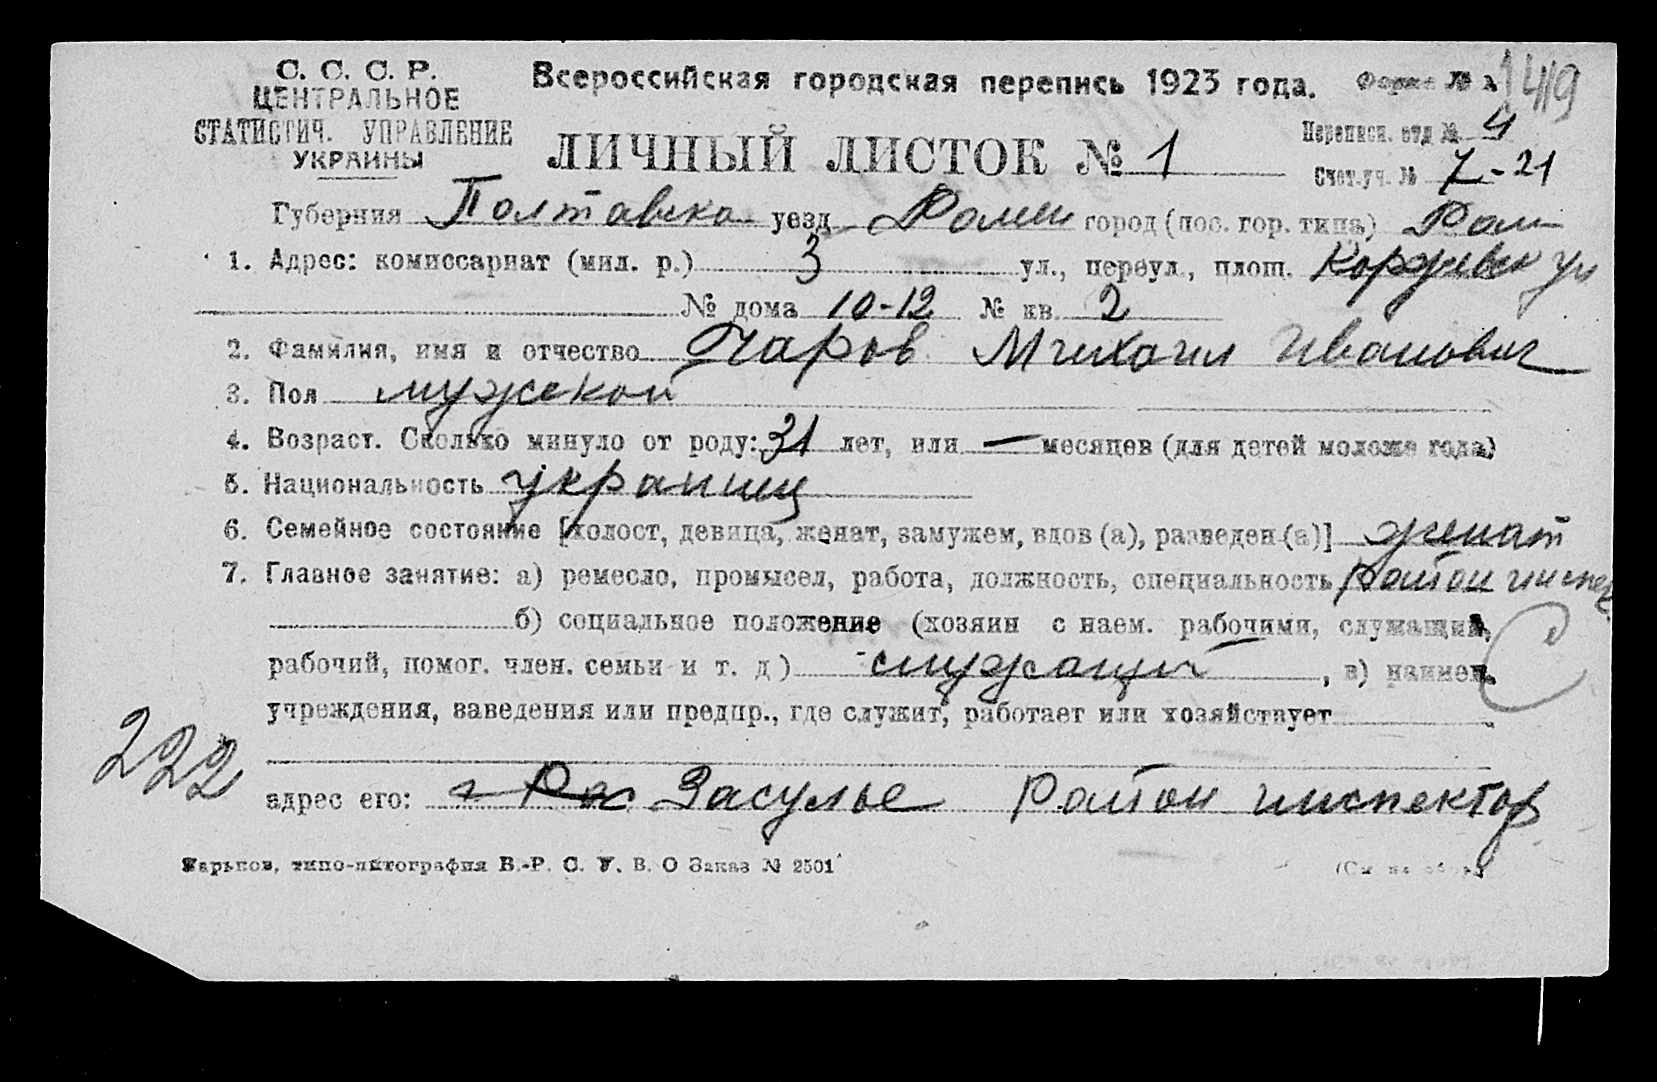 С. С. С. Р.
ЦЕНТРАЛЬНОЕ
СТАТИСТИЧ. УПРАВЛЕНИЕ
УКРАИНЫ
Всероссийская городская перепись 1923 года. Форма № 1419
ЛИЧНЫЙ ЛИСТОК № 1
Переписн. отд № 4
Счет. уч. № 7-21
Губерния Полтавска уезд Ромен город (пос. гор. типа) Ром
1. Адрес: комиссариат (мил. р.) 3 ул., переул., площ. Коржевск ул
№ дома 10-12 № кв. 2
2. Фамилия, имя и отчество Чаров Михаил Иванович
3. Пол мужской
4. Возраст. Сколько минуло от роду: 31 лет, или — месяцев (для детей моложе года)
5. Национальность украинец
6. Семейное состояние [холост, девица, женат, замужем, вдов (а), разведен (а)] женат
7. Главное занятие: а) ремесло, промысел, работа, должность, специальность Район инспек
б) социальное положение (хозяин с наем. рабочими, служащий,
рабочий, помог. член. семьи и т. д) служащий, в) наимен.
учреждения, заведения или предпр., где служит, работает или хозяйствует
222
адрес его: Засулье Район инспектор
Харьков, типо-литография В.-Р. С. У. В. О Заказ № 2501